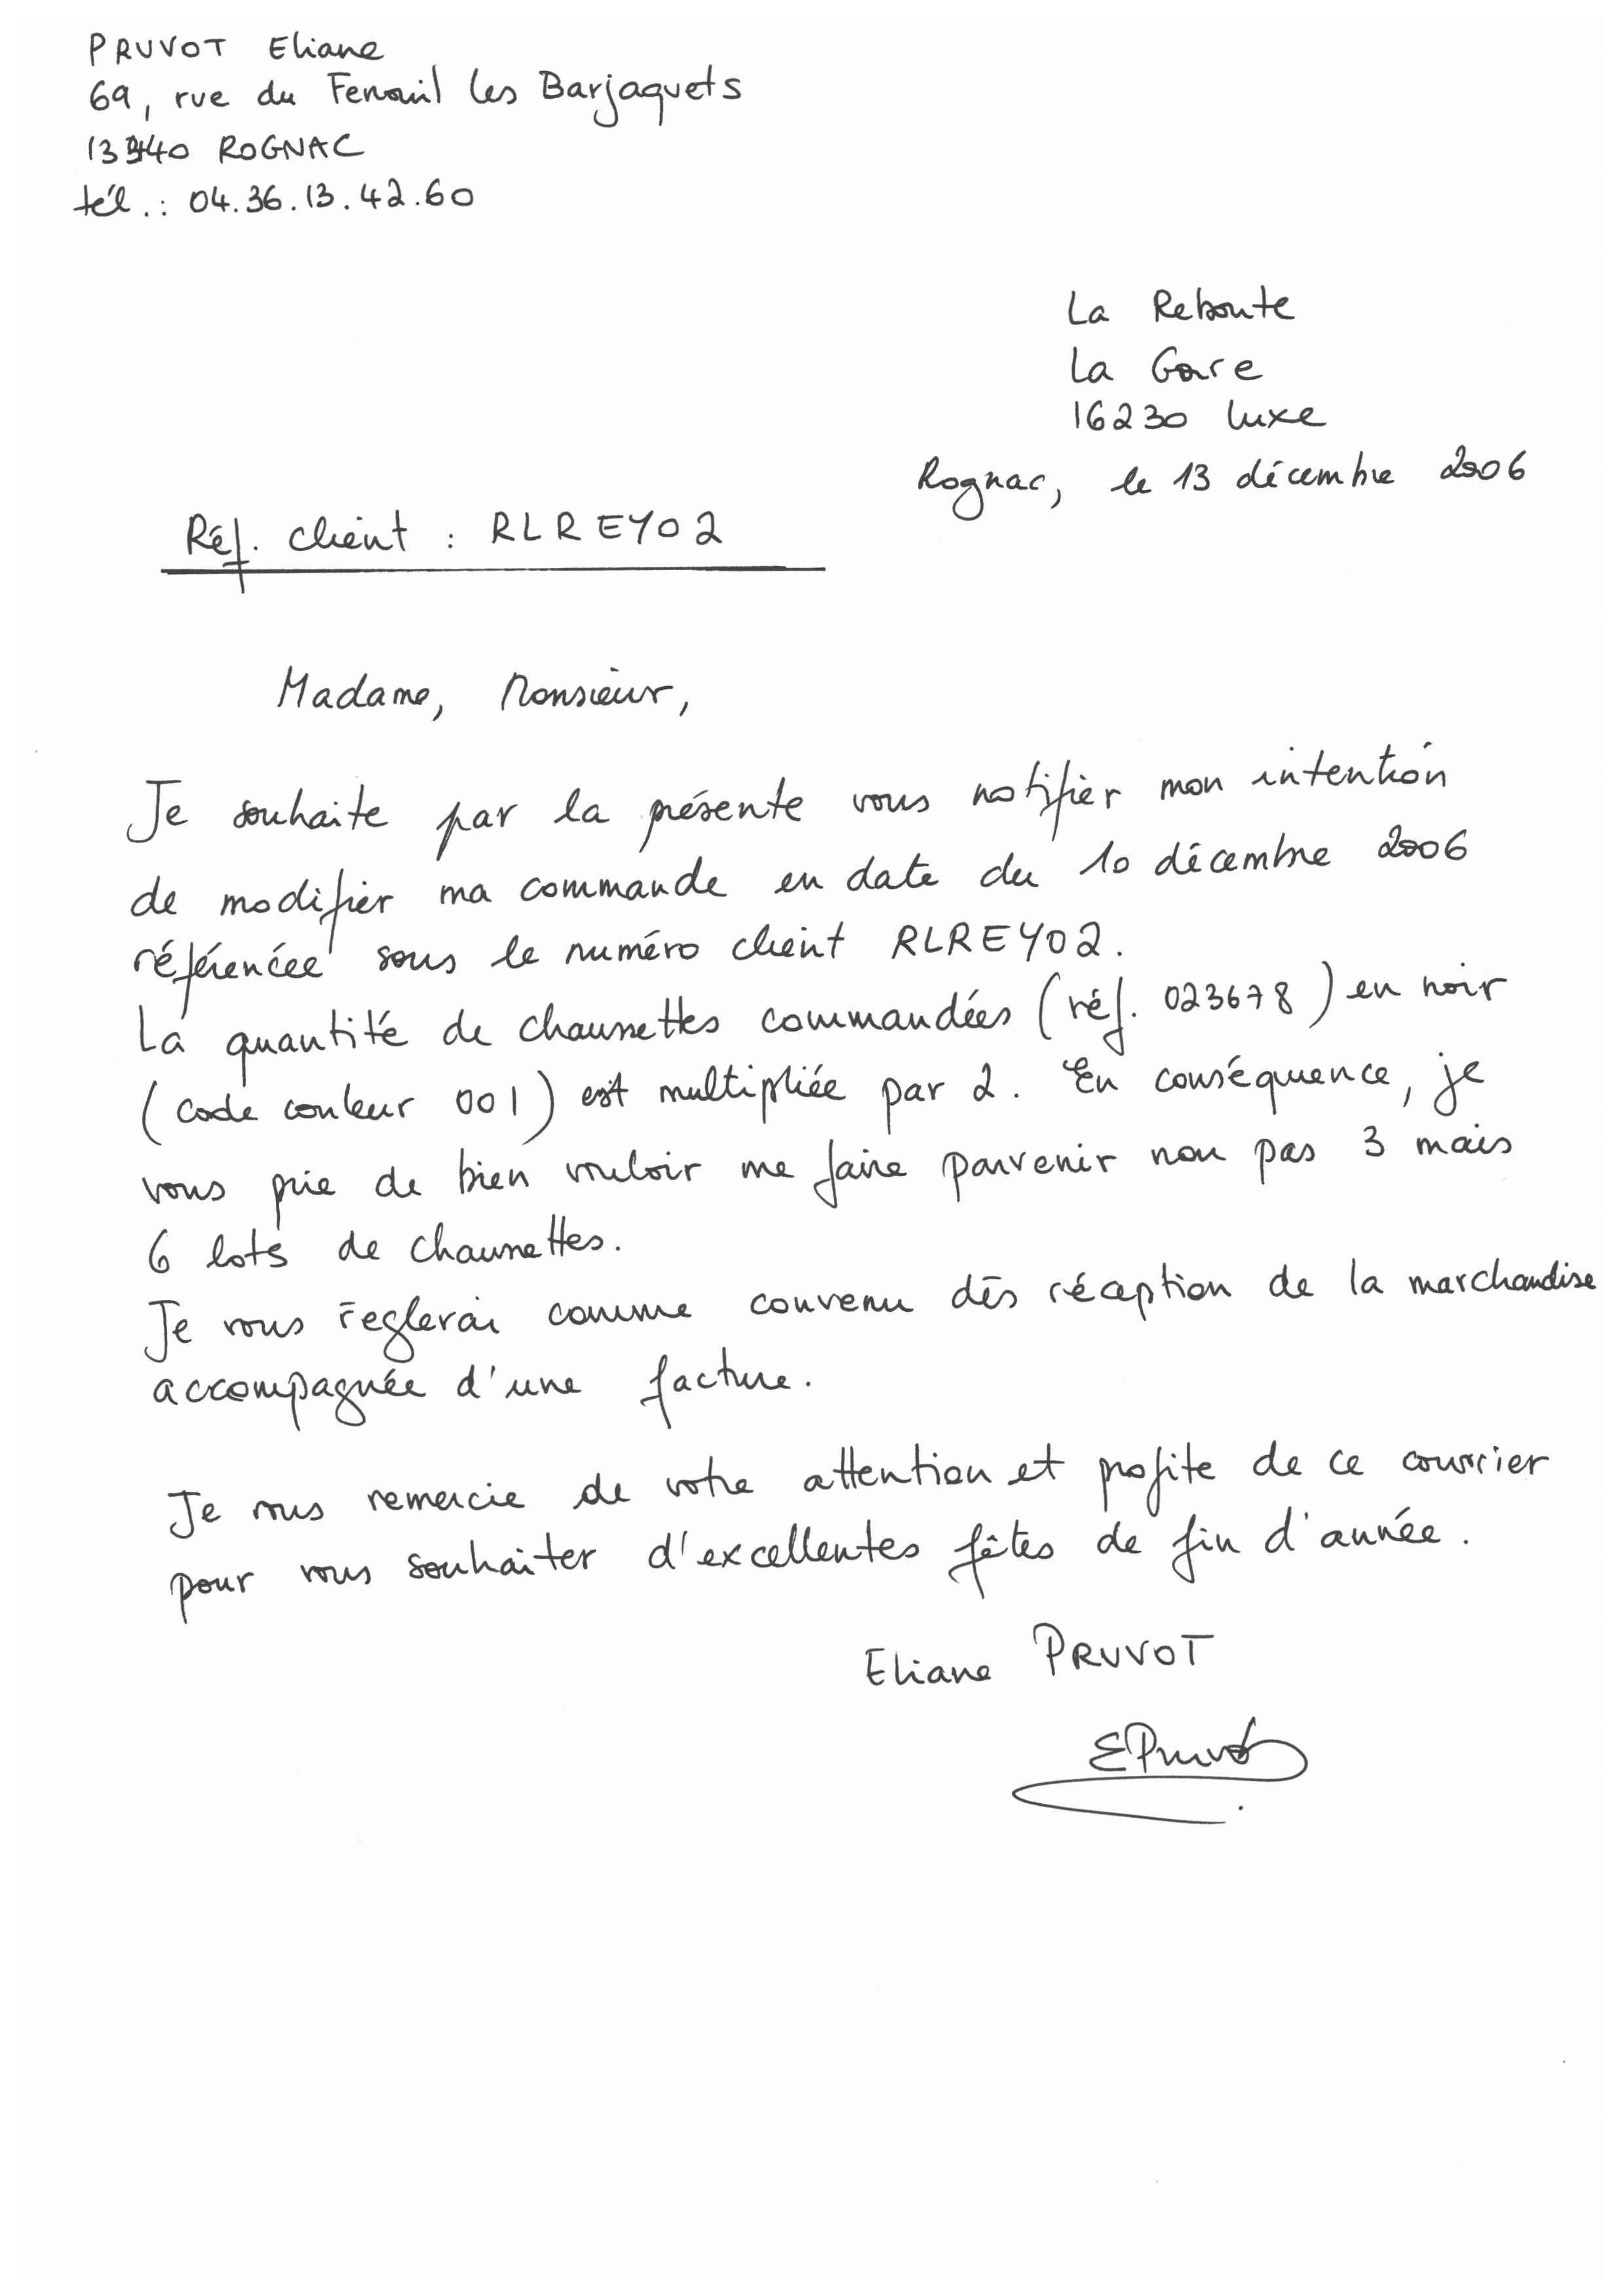 PRUVOT Eliane
69, rue du Fenouil les Barjaquets
13340 ROGNAC
tél.: 04.36.13.42.60
La Reboute
La Gare
16230 Luxe
Rognac, le 13 décembre 2006
Réf. client : RLREY02
Madame, Monsieur,
Je souhaite par la présente vous notifier mon intention
de modifier ma commande en date du 10 décembre 2006
référencée sous le numéro client RLREY02.
La quantité de chaussettes commandées (réf. 023678) en noir
(code couleur 001) est multipliée par 2. En conséquence, je
vous prie de bien vouloir me faire parvenir non pas 3 mais
6 lots de chaussettes.
Je vous règlerai comme convenu dès réception de la marchandise
accompagnée d'une facture.
Je vous remercie de votre attention et profite de ce courrier
pour vous souhaiter d'excellentes fêtes de fin d'année.
Eliane PRUVOT
EPruvot